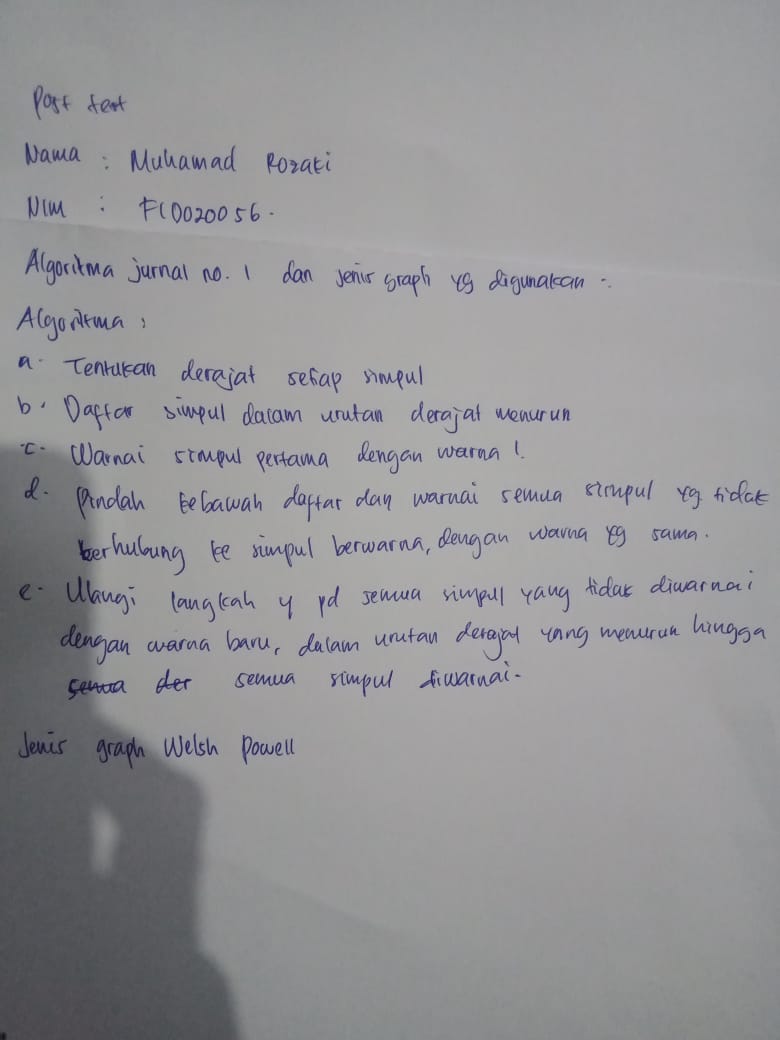 Post test
Nama : Muhamad Rozaki
NIM : F1C0020056.
Algoritma jurnal no. 1 dan jenis graph yg digunakan :.
Algoritma :
a. Tentukan derajat setiap simpul
b. Daftar simpul dalam urutan derajat menurun
c. Warnai simpul pertama dengan warna 1.
d. Pindah kebawah daftar dan warnai semua simpul yg tidak
berhubung ke simpul berwarna, dengan warna yg sama.
e. Ulangi langkah 4 pd semua simpul yang tidak diwarnai
dengan warna baru, dalam urutan derajat yang menurun hingga
semua der semua simpul diwarnai.
Jenis graph Welsh Powell